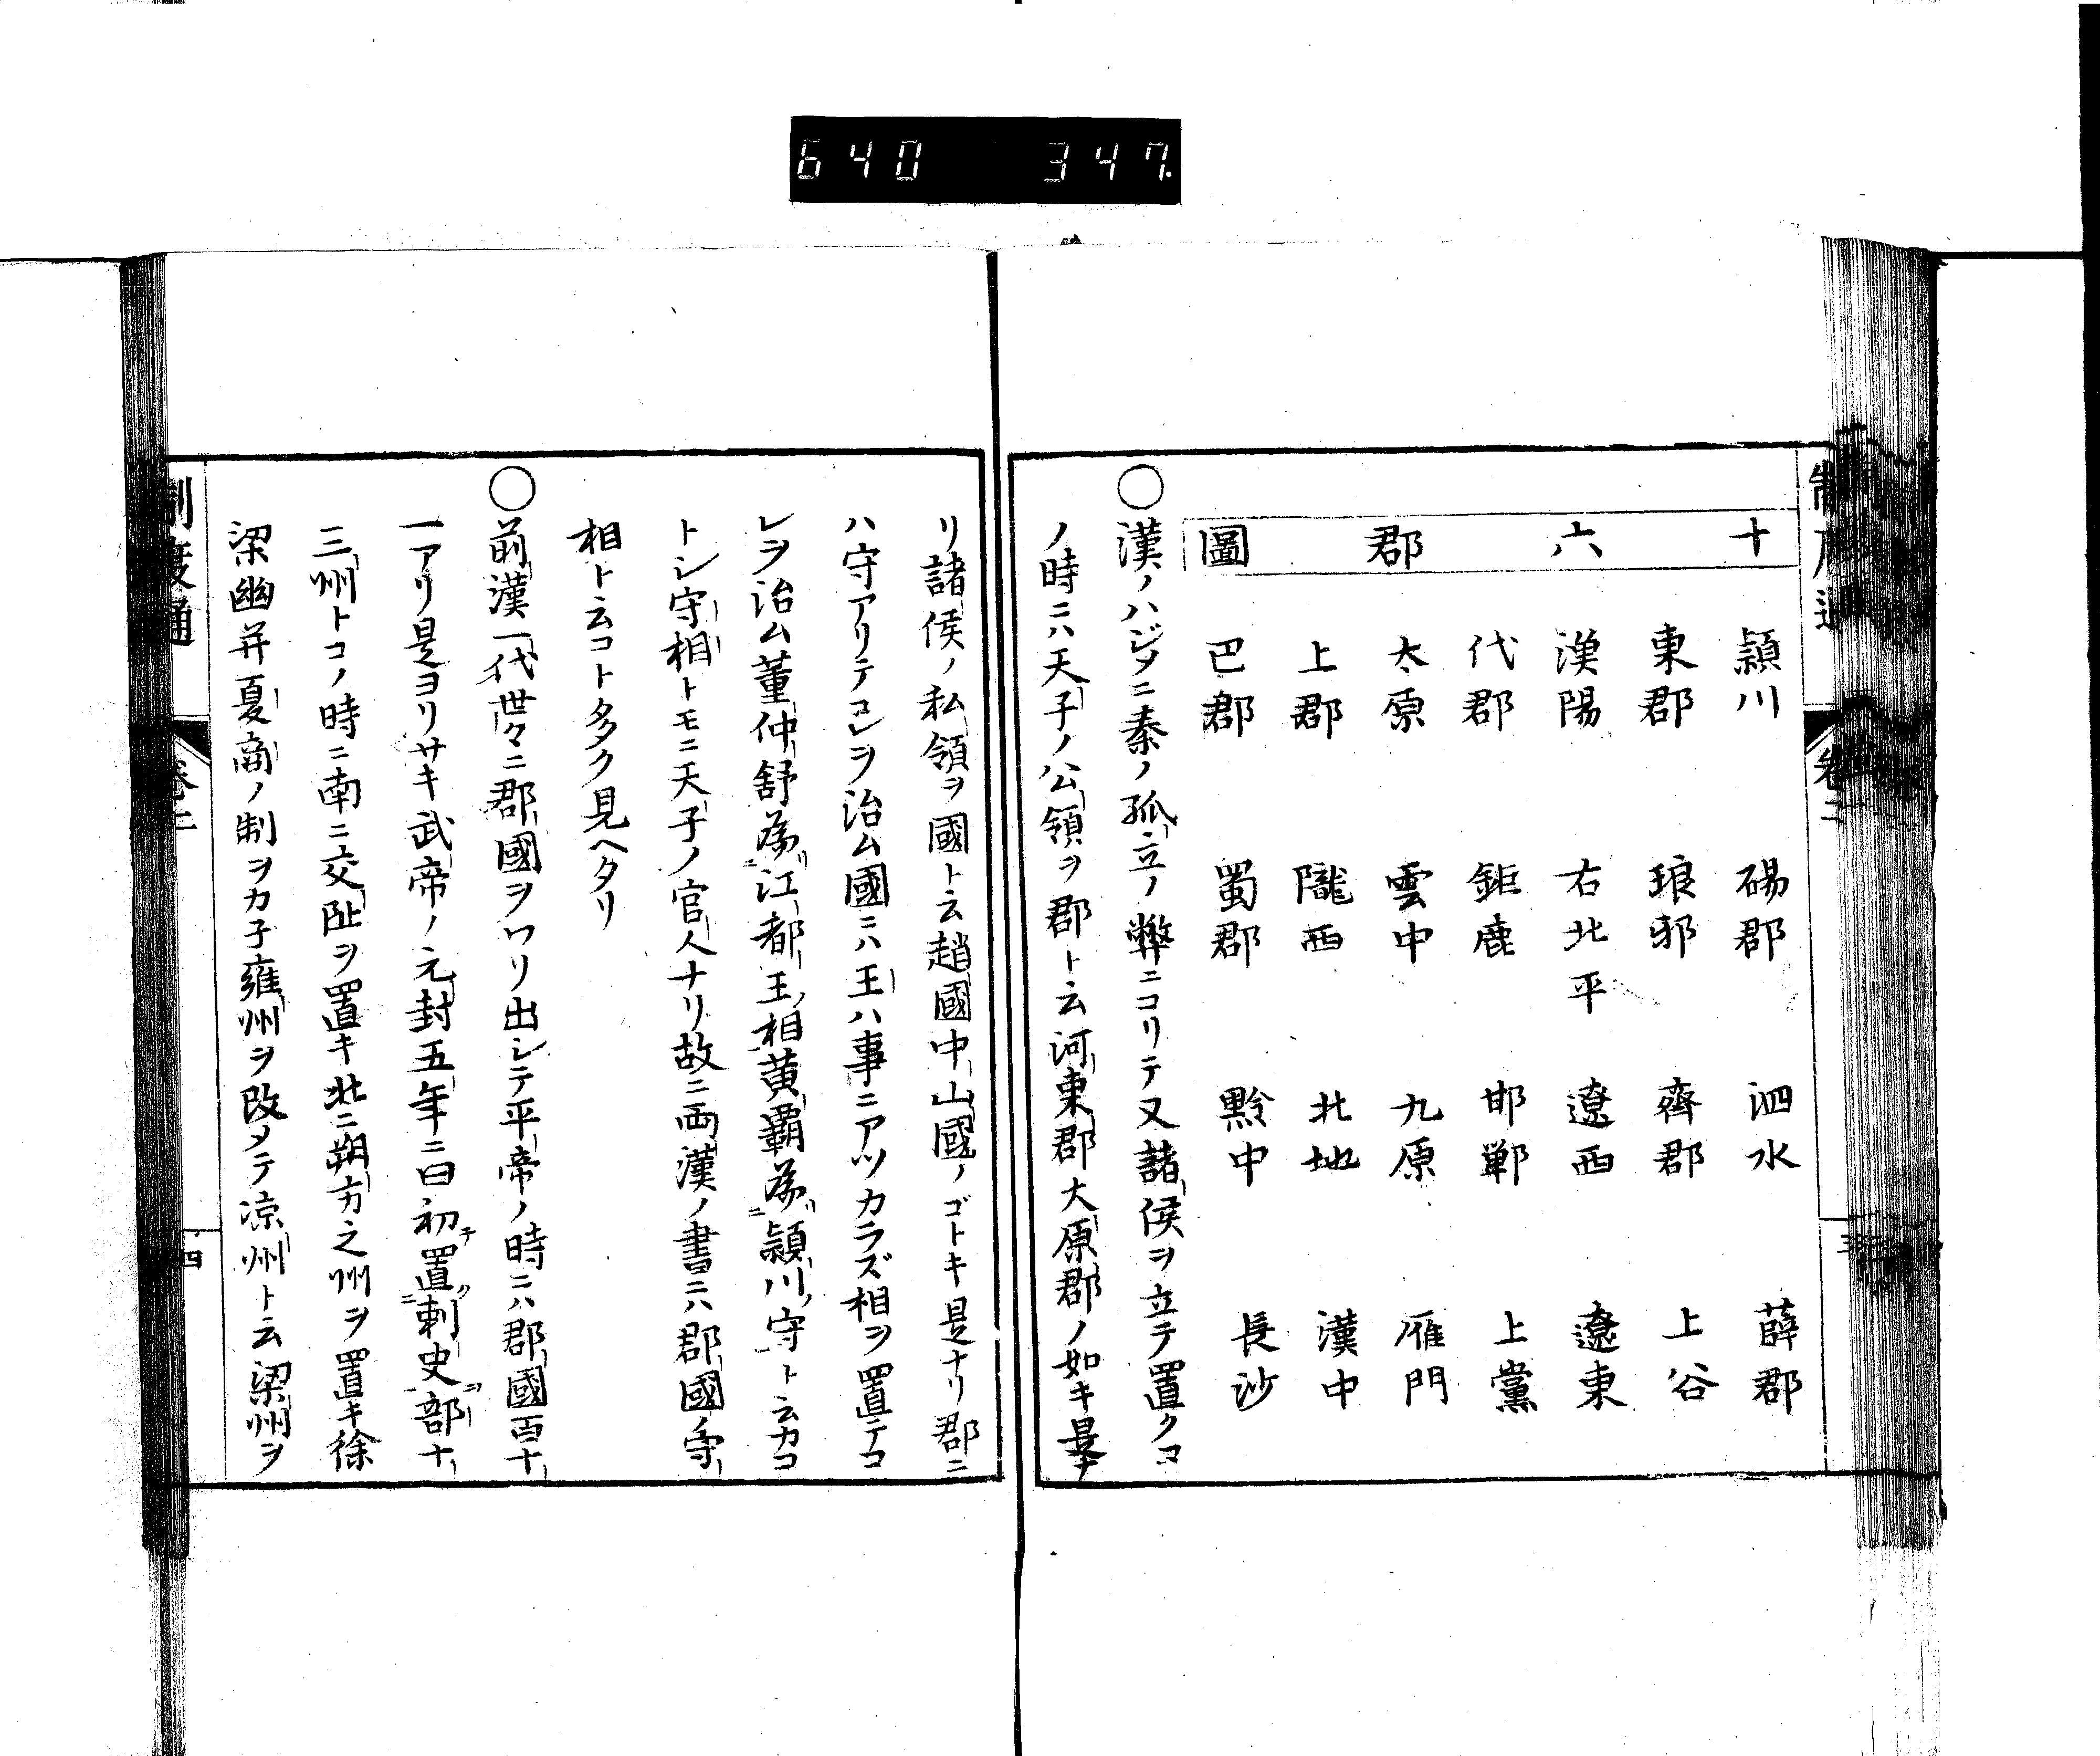 640 347.
十六郡圖
頴川 碭郡 泗水 薛郡
東郡 琅邪 齊郡 上谷
漢陽 右北平 遼西 遼東
代郡 鉅鹿 邯鄲 上黨
太原 雲中 九原 雁門
上郡 隴西 北地 漢中
巴郡 蜀郡 黔中 長沙
○漢ノハジメニ秦ノ孤立ノ弊ニコリテ又諸侯ヲ立テ置クコ
ノ時ニハ天子ノ公領ヲ郡ト云河東郡大原郡ノ如キ是ナ
リ諸侯ノ私領ヲ國ト云趙國中山國ノゴトキ是ナリ郡ニ
ハ守アリテコレヲ治ム國ニハ王ハ事ニアツカラズ相ヲ置テコ
レヲ治ム董仲舒為江都王相黄覇為頴川守ト云カコ
トシ守相トモニ天子ノ官人ナリ故ニ両漢ノ書ニハ郡國ノ守
相ト云コト多ク見ヘタリ
○前漢一代世々ニ郡國ヲワリ出シテ平帝ノ時ニハ郡國百十
一アリ是ヨリサキ武帝ノ元封五年ニ曰初テ置ク刺史部十
三州トコノ時ニ南ニ交阯ヲ置キ北ニ朔方之州ヲ置キ徐
梁幽并夏商ノ制ヲカ子雍州ヲ改メテ涼州ト云梁州ヲ
制度通 卷二 四